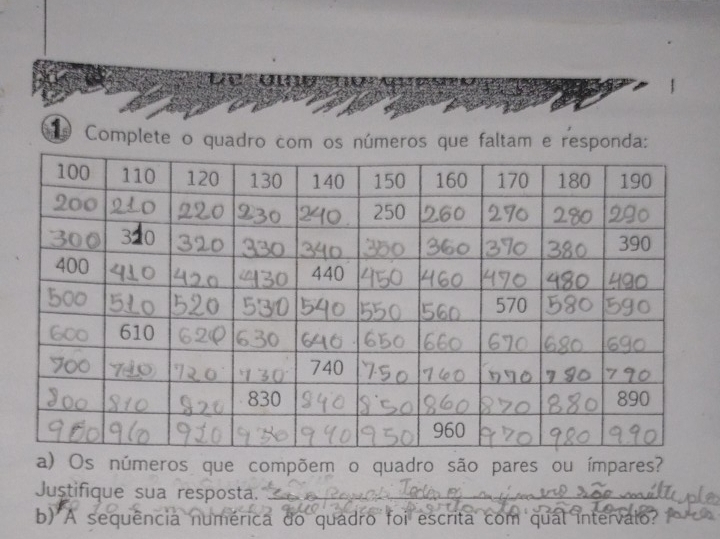 De olho no quadro
1 Complete o quadro com os números que faltam e responda:
100 110 120 130 140 150 160 170 180 190
200 210 220 230 240 250 260 270 280 290
300 310 320 330 340 360 370 380 390
400 410 420 430 440 450 460 470 480 490
500 510 520 530 540 550 560 570 580 590
600 610 620 630 640 650 660 670 680 690
700 710 720 730 740 750 760 770 780 790
800 810 820 830 840 850 860 870 880 890
900 910 930 940 950 960 970 980 990
a) Os números que compõem o quadro são pares ou ímpares?
Justifique sua resposta. são múltiplos
b) A sequência numérica do quadro foi escrita com qual intervalo? pares